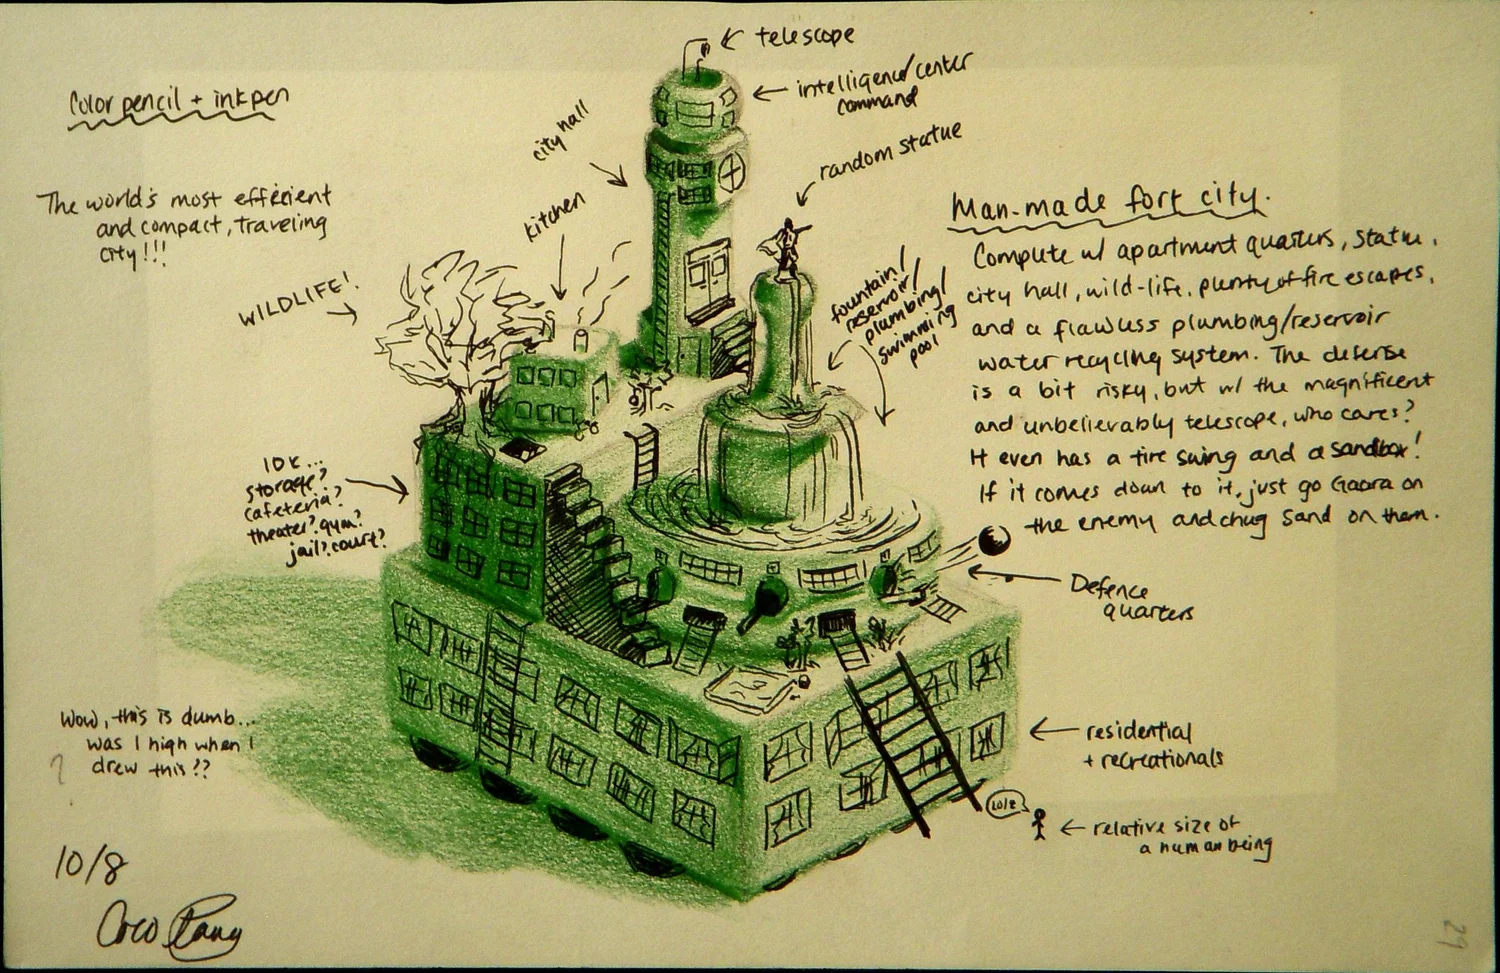 Color pencil + ink pen
The world's most efficient
and compact, traveling
city!!!
WILDLIFE!
city hall
kitchen
telescope
intelligence/center
command
random statue
fountain/
reservoir/
plumbing/
swimming
pool
Man-made fort city.
Complete w/ apartment quarters, statue,
city hall, wild-life, plenty of fire escapes,
and a flawless plumbing/reservoir
water recycling system. The defense
is a bit risky, but w/ the magnificent
and unbelievably telescope, who cares?
It even has a tire swing and a sandbox!
If it comes down to it, just go Gaara on
the enemy and chug sand on them.
IDK...
storage?
cafeteria?
theater? gym?
jail? court?
Defence
quarters
residential
+ recreationals
LOLZ
relative size of
a human being
Wow, this is dumb...
was I high when I
drew this??
?
10/8
Coco
29